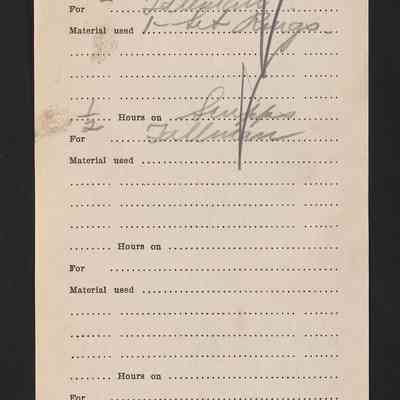 For Tillman
Material used 1 - Set Rings
1/2 Hours on
For Tillman
Material used
Hours on
For
Material used
Hours on
For